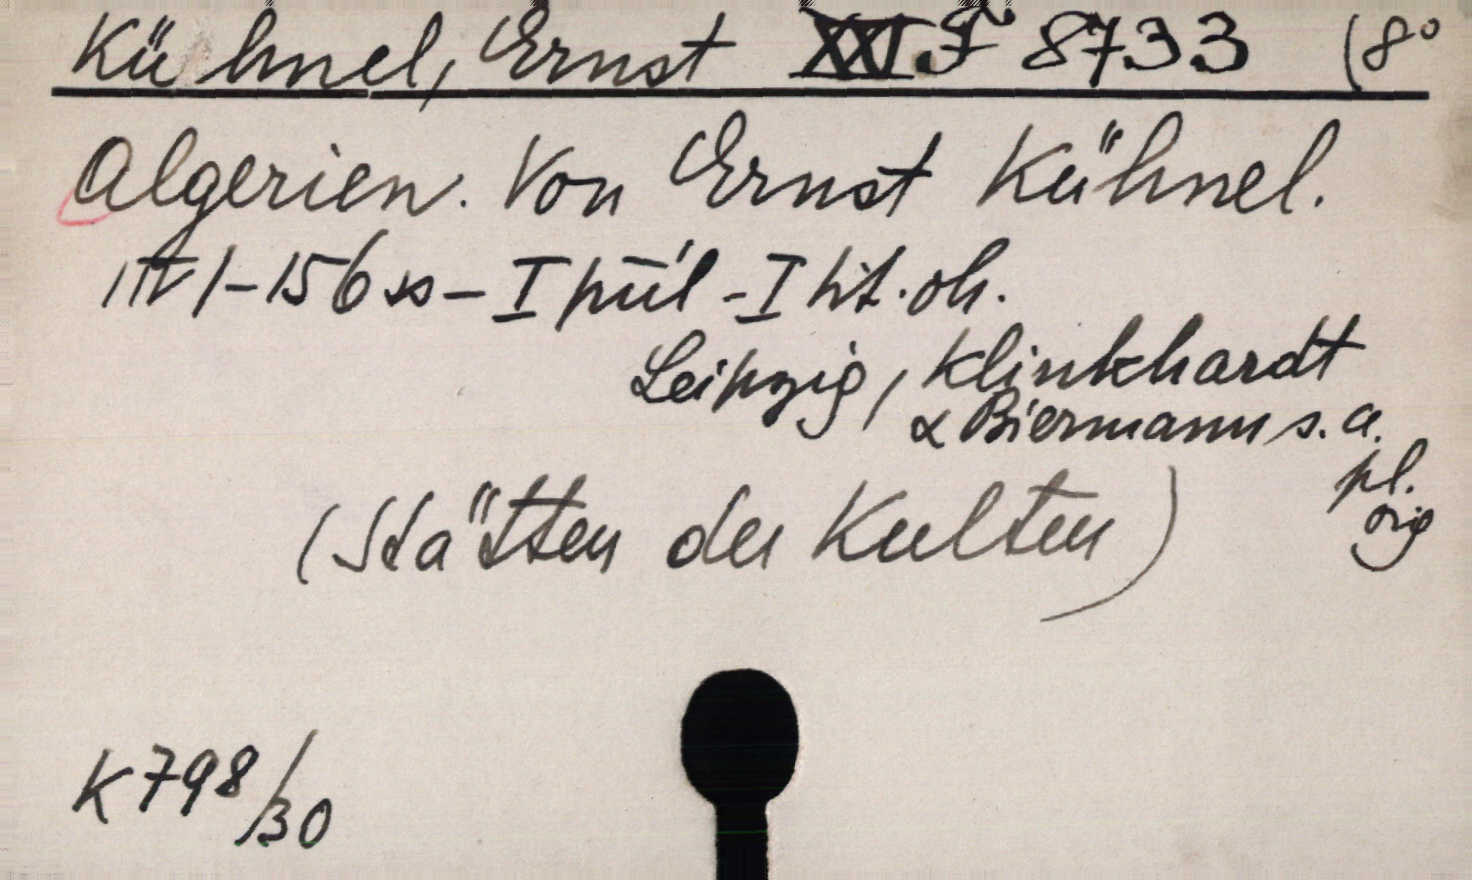 Kühnel, Ernst XXI F 8733 (8°
Algerien. Von Ernst Kühnel.
1-156 ss - I - I tit. oh.
Leipzig, Klinkhardt
& Biermann s. a.
pl.
orig
(Stätten der Kultur)
K 798/30